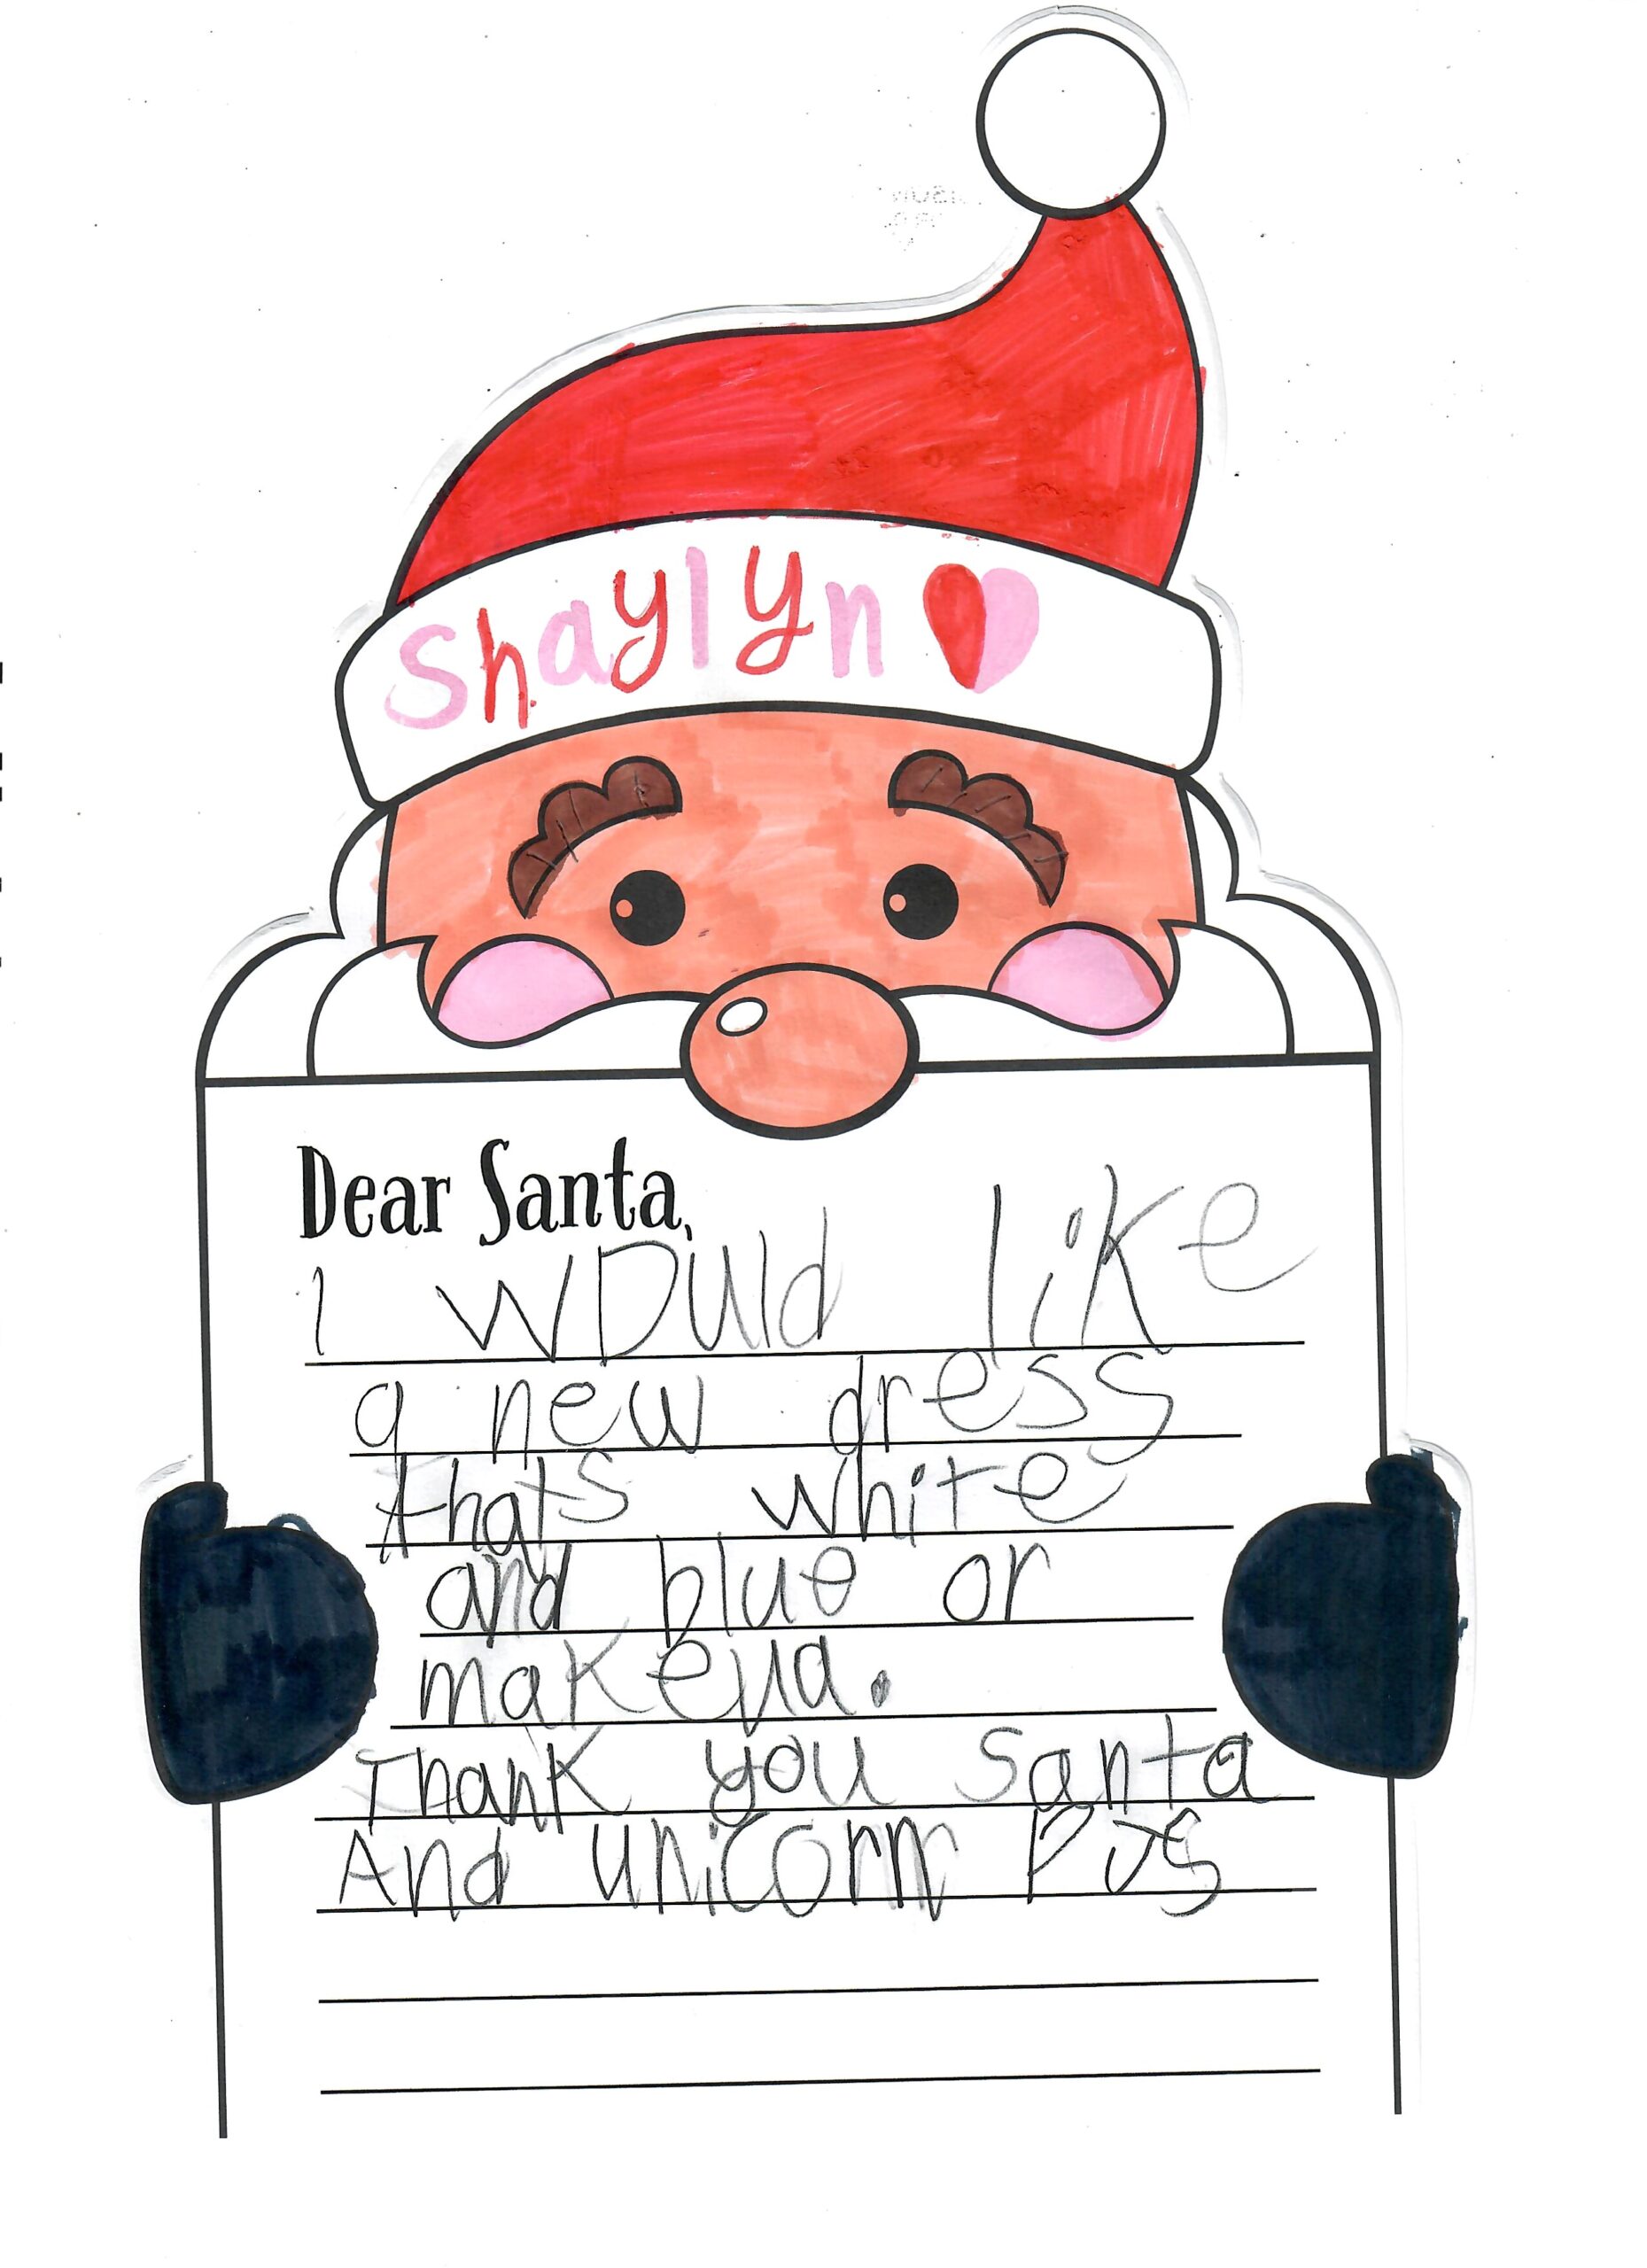 Shaylyn
Dear Santa,
I would like
a new dress
thats white
and blue or
makeup.
Thank you Santa
And unicorn PJs